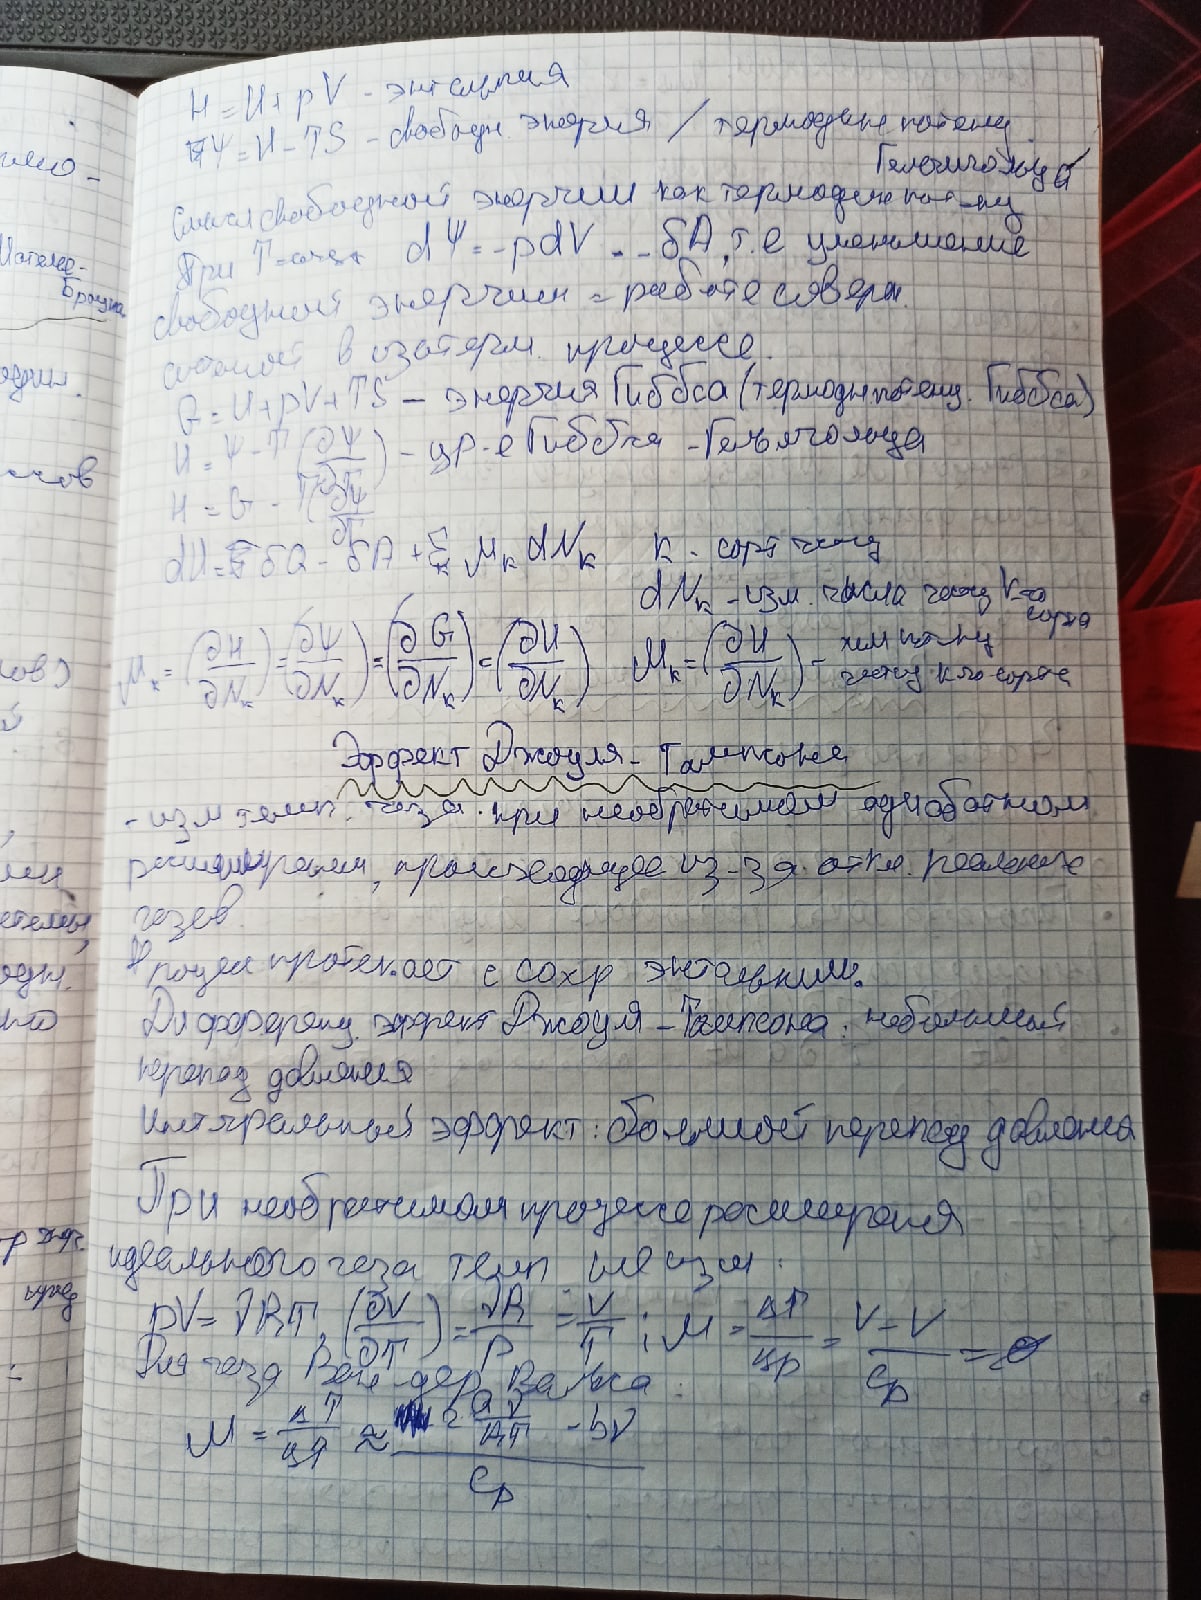 H = U + pV - энтальпия
Ψ = U - TS - свободн. энергия / термодин потенц.
Гельмгольца
Смысл свободной энергии как термодин пот-ла
При T=const dΨ = -pdV = -δA, т.е уменьшение
свободной энергии = работе соверш.
в изотерм. процессе.
G = U + pV + TS - энергия Гиббса (термодин потенц. Гиббса)
U = Ψ - T (∂Ψ/∂T) - ур-е Гиббса - Гельмгольца
H = G - T (∂Ψ/∂T
dU = δQ - δA + Σ_k μ_k dN_k k - сорт частиц
dN_k - изм. числа частиц k-го
сорта
μ_k = (∂H/∂N_k) = (∂Ψ/∂N_k) = (∂G/∂N_k) = (∂U/∂N_k) μ_k = (∂U/∂N_k) - хим потенц
частиц k-го сорта
Эффект Джоуля - Томпсона
- изм темп. газа при необратимом адиабатном
расширении, происходящее из-за откл. реальных
газов.
Процесс протекает с сохр энтальпии.
Дифференц. эффект Джоуля - Томпсона: небольшой
перепад давления
Интегральный эффект: большой перепад давления
При необратимом процессе расширения
идеального газа темп не изм:
pV = νRT, (∂V/∂T) = νR/p = V/T ; μ = ΔT/Δp = V - V/C_p = 0
Для газа Ван-дер-Ваальса:
μ = ΔT/Δp ≈ 2aν/RT - bν/C_p